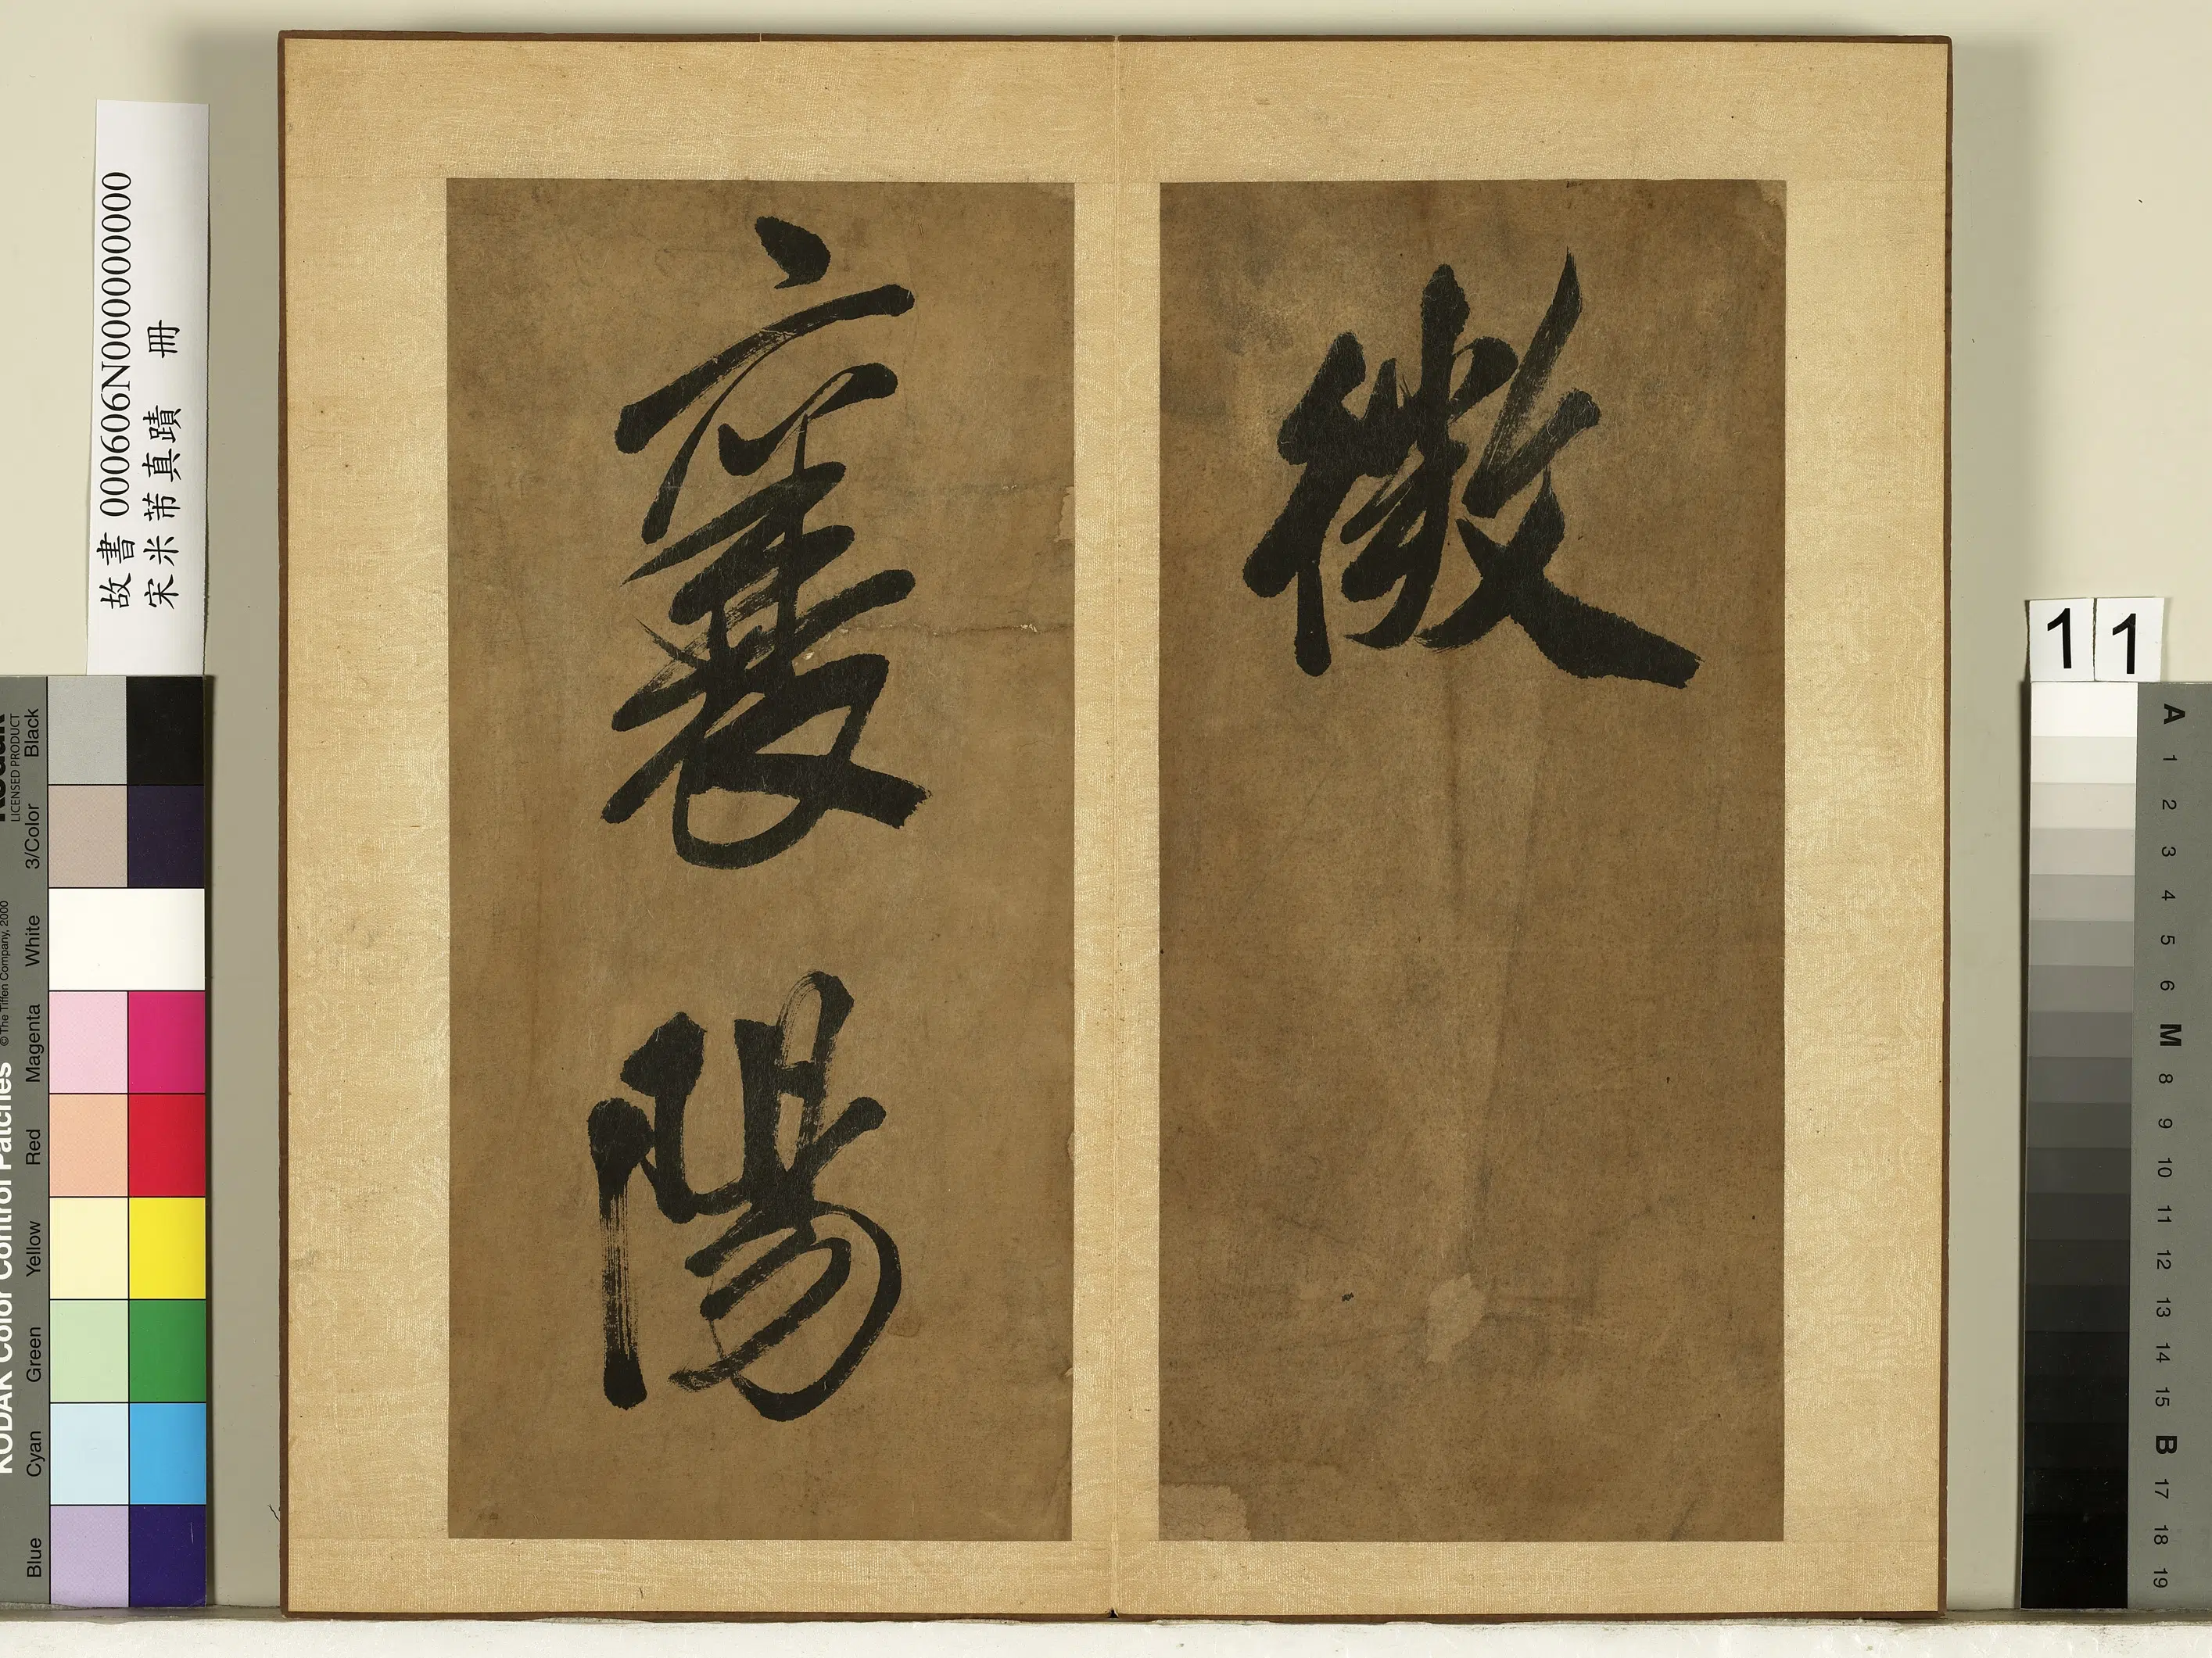 微
襄陽
故書 000606N000000000
宋米芾真蹟 冊
11
KODAK Color Control Patches
© The Tiffen Company, 2000
LICENSED PRODUCT
Blue Cyan Green Yellow Red Magenta White 3/Color Black
A 1 2 3 4 5 6 M 8 9 10 11 12 13 14 15 B 17 18 19